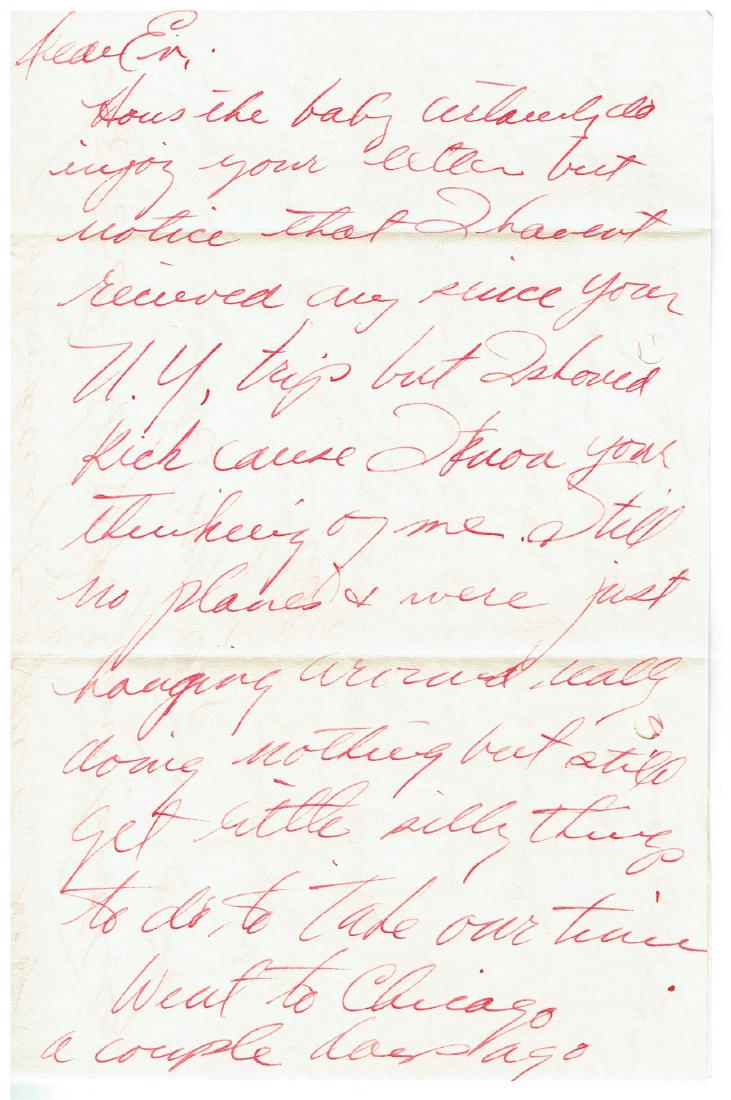 Dear Ev,
Hows the baby certanly do
injoy your letter but
notice that I havent
recieved any since your
N.Y. trip but I shoud
kick cause I know your
thinking of me. Still
no planes & were just
hanging around really
doing nothing but still
get little silly things
to do, to take our time.
Went to Chicago
a couple days ago